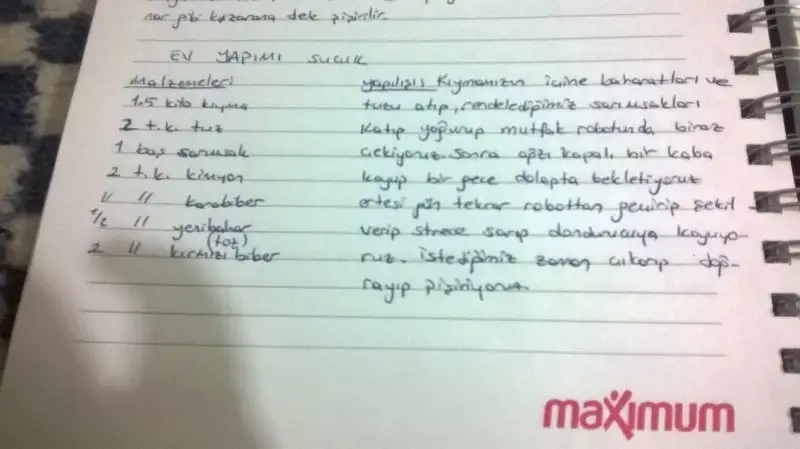 nar gibi kızarana dek pişirilir.
EV YAPIMI SUCUK
Malzemeleri
1.5 kilo kıyma
2 t.k. tuz
1 baş sarımsak
2 t.k. kimyon
" " karabiber
1/2 " yenibahar
(toz)
2 " kırmızı biber
yapılışı: Kıymamızın içine baharatları ve
tuzu atıp, rendelediğimiz sarımsakları
katıp yoğurup mutfak robotunda biraz
çekiyoruz. Sonra ağzı kapalı bir kaba
koyup bir gece dolapta bekletiyoruz
ertesi gün tekrar robottan geçirip şekil
verip strece sarıp dondurucuya koyuyo-
ruz. istediğimiz zaman çıkarıp doğ-
rayıp pişiriyoruz.
maximum